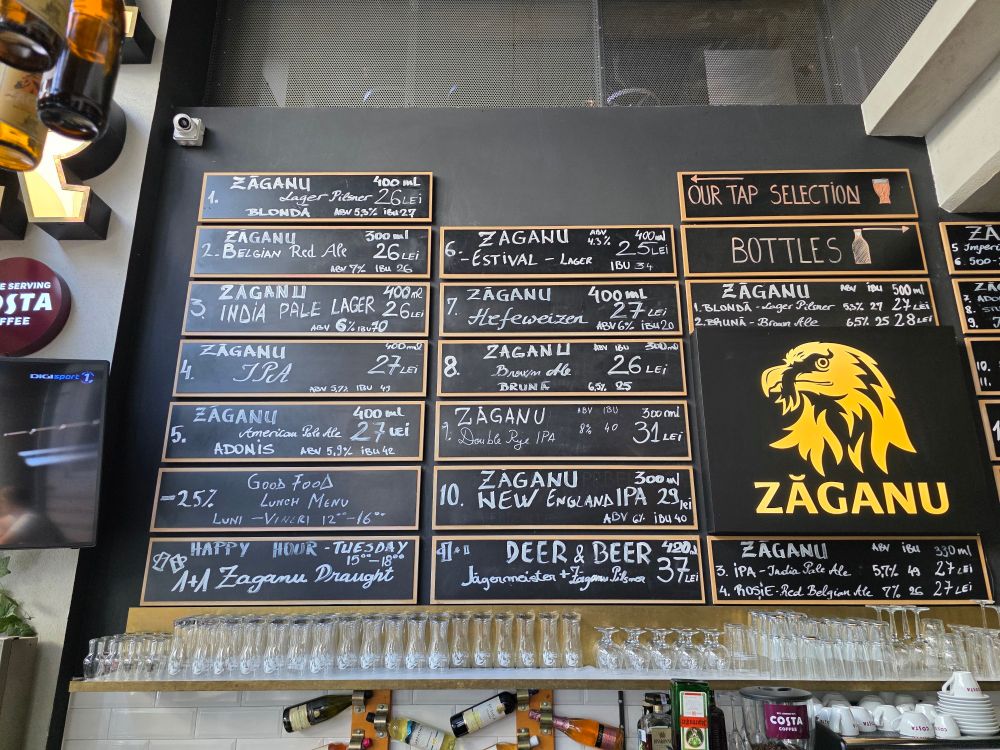 ZĂGANU 400 mL
1. Lager Pilsner 26 LEI
BLONDĂ ABV 5,3% IBU 27
ZĂGANU 300 ml
2. BELGIAN Red Ale 26 LEI
ABV 7% IBU 26
ZĂGANU 400 ml
3. INDIA PALE LAGER 26 LEI
ABV 6% IBU 70
ZĂGANU 400 ml
4. IPA 27 LEI
ABV 5,7% IBU 49
ZĂGANU 400 mL
5. American Pale Ale 27 LEI
ADONIS ABV 5,9% IBU 42
GOOD FOOD
-25% LUNCH MENU
LUNI - VINERI 12°° - 16°°
HAPPY HOUR - TUESDAY
15°° - 18°°
1+1 Zaganu Draught
6. ZĂGANU ABV 4.3% 400 ml
- ESTIVAL - LAGER 25 LEI
IBU 34
ZĂGANU 400 ml
7. Hefeweizen 27 LEI
ABV 6% IBU 20
ZĂGANU ABV IBU 300 ml
8. Brown Ale 26 LEI
BRUNĂ 6,5% 25
ZĂGANU ABV IBU 300 ml
9. Double Rye IPA 8% 40 31 LEI
ZĂGANU 300 ml
10. NEW ENGLAND IPA 29 lei
ABV 6% IBU 40
+ DEER & BEER 37 LEI
Jägermeister + Zaganu Pilsner
OUR TAP SELECTION
BOTTLES
ZĂGANU ABV IBU 500 ml
1. BLONDĂ - Lager Pilsner 5,3% 27 27 LEI
2. BRUNĂ - Brown Ale 6,5% 25 28 LEI
ZĂGANU
ZĂGANU ABV IBU 330 ml
3. IPA - India Pale Ale 5,7% 49 27 LEI
4. ROȘIE - Red Belgian Ale 7% 26 27 LEI
ZĂ
5 Imperi
6. 500-
ZĂ
7. ADO
8. ST
9.
10.
11.
E SERVING
COSTA
COFFEE
DIGI sport 1
COSTA
COFFEE
COSTA